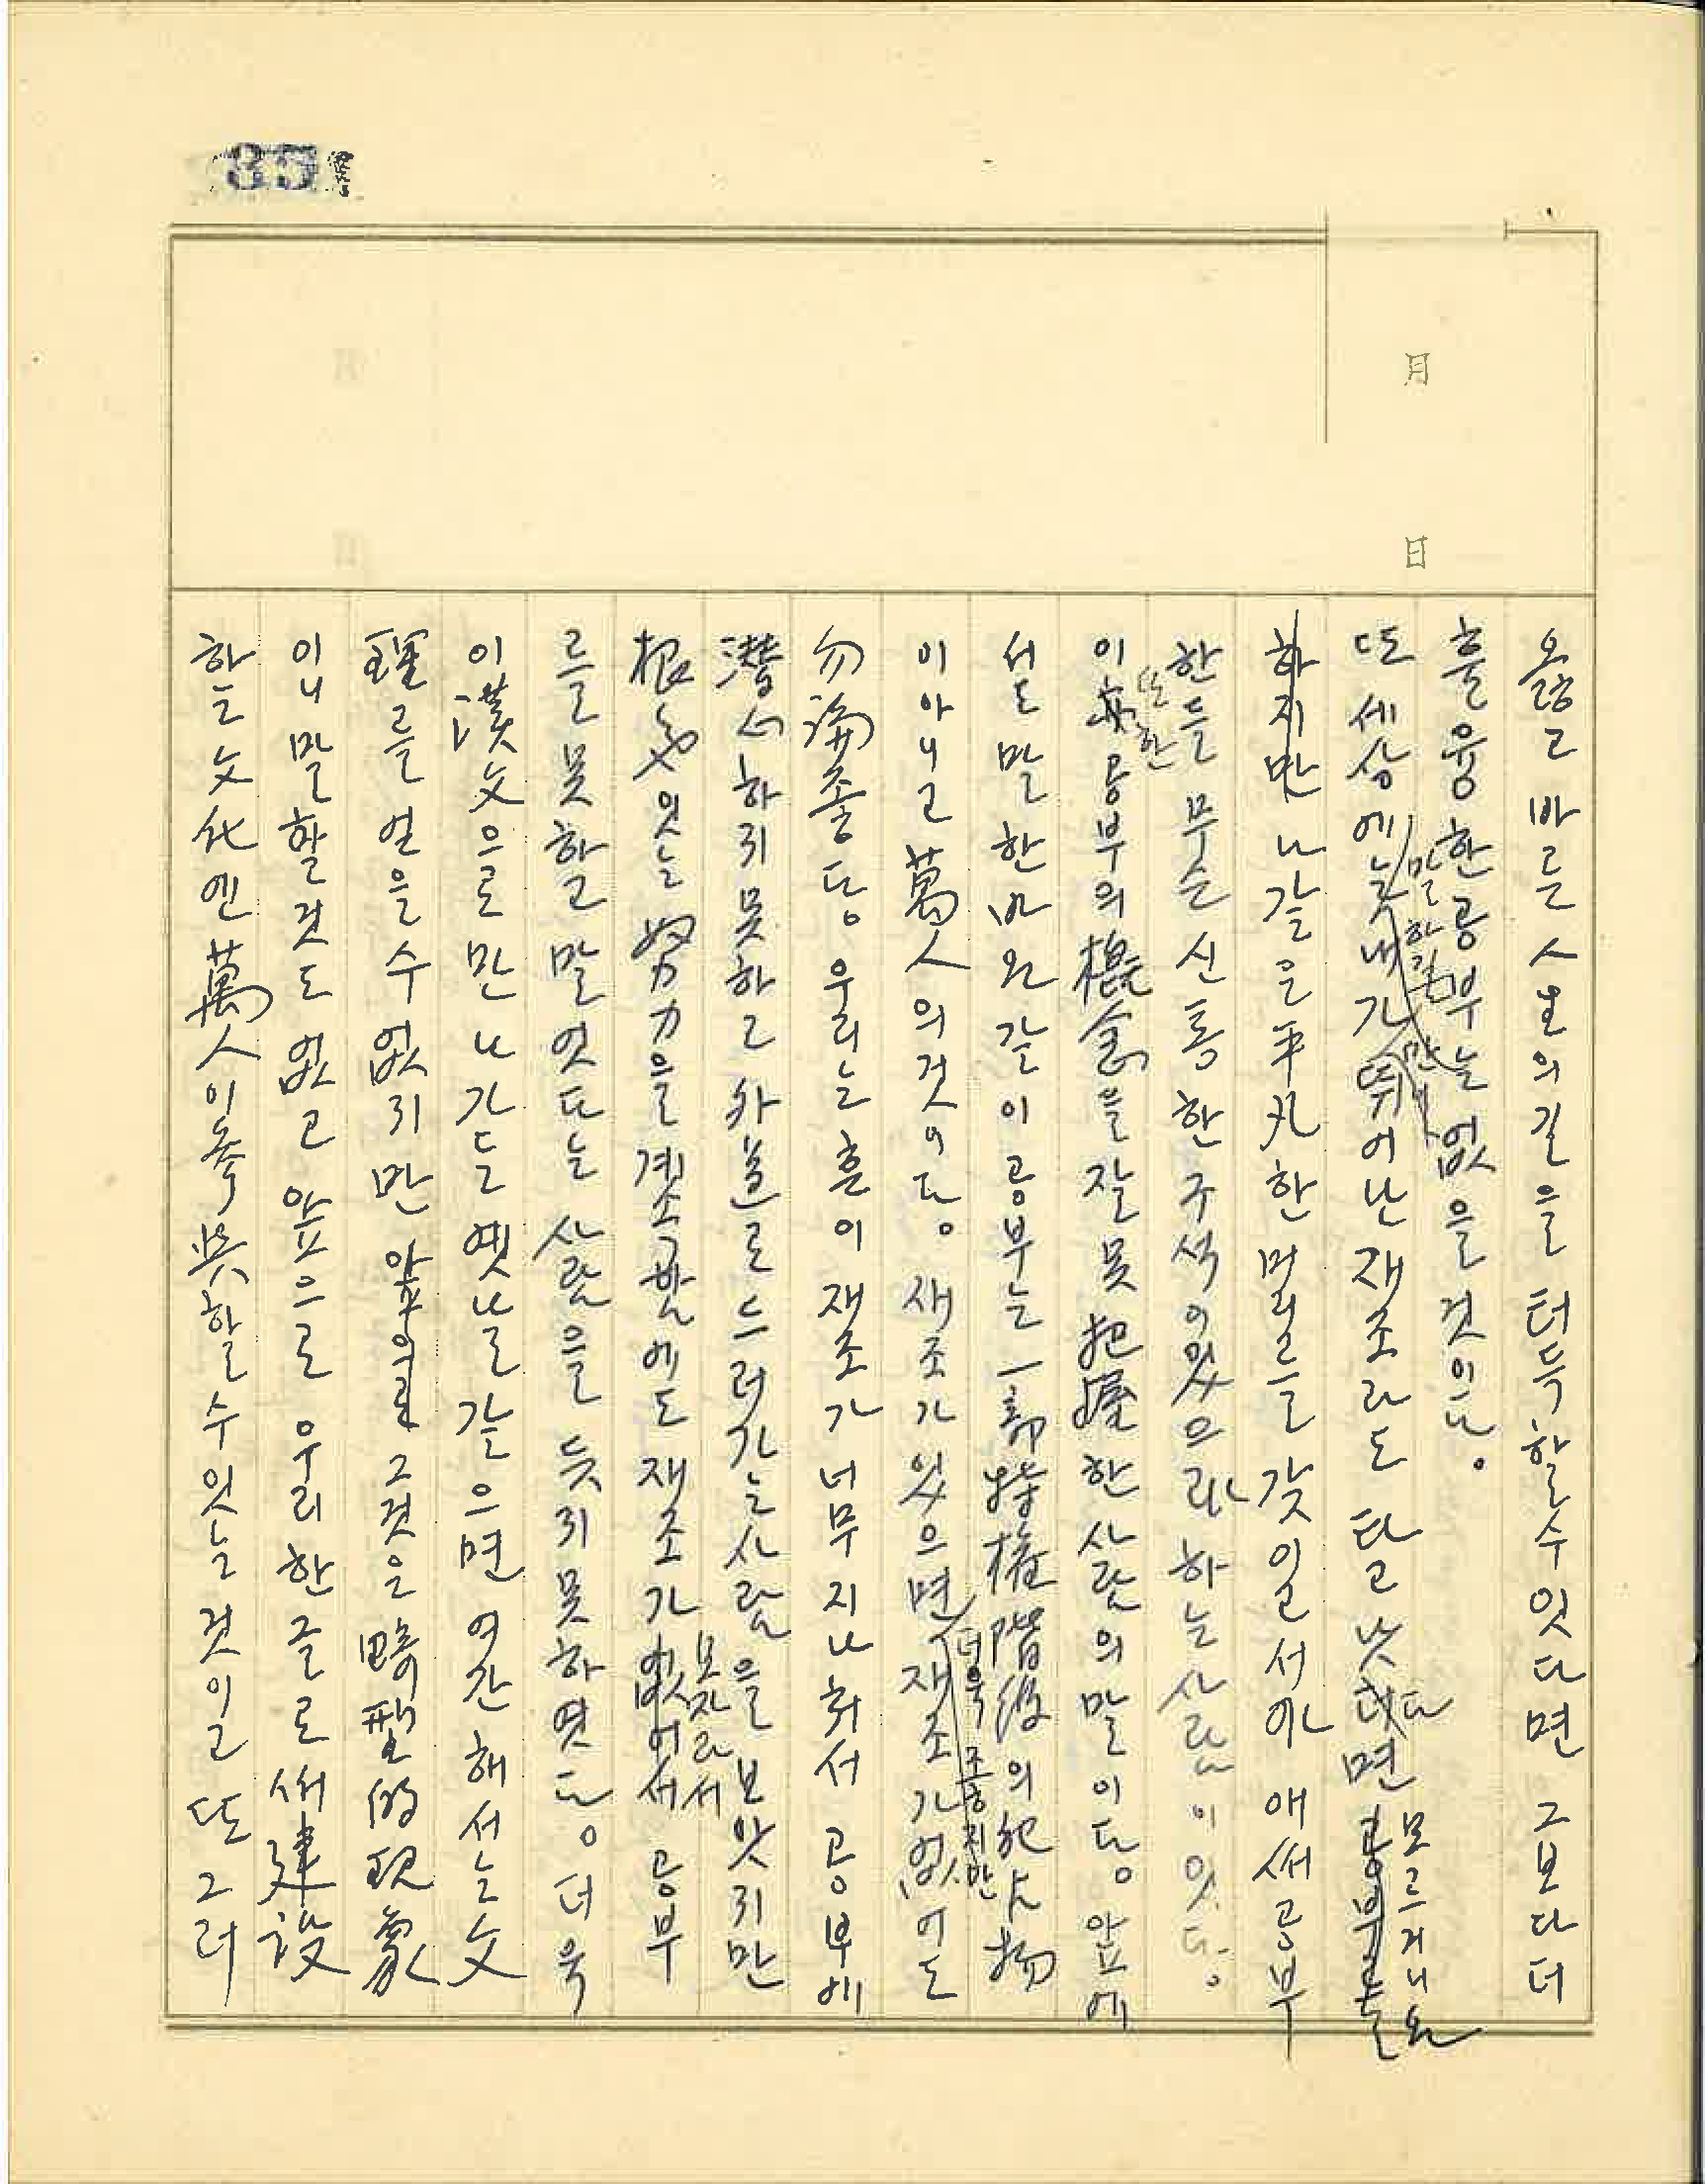 85
月
日
옳고 바른 人生의 길을 터득할 수 잇다면 그보다 더
훌융한 공부는 없을 것이다.
또 세상에는 내가 뛰어난 재조라도 타고 낫다면 공부를
말하길 만
다 모르거니와
하지만 나 같은 平凡한 머리를 갖인 서야 애써 공부
한들 무슨 신통한 구석이 있으랴 하는 사람이 잇다.
또한
이 亦 공부의 槪念을 잘못 把握한 사람의 말이다. 앞에
서도 말한 바와 같이 공부는 一部 特權階級의 私占物
이 아니고 萬人의 것이다. 재조가 있으면 재조가 없어도
더욱 조흐지만
勿論 좋다. 우리는 흔이 재조가 너무 지나취서 공부에
潛心하지 못하고 外道로 드러가는 사람을 보앗지만
根氣잇는 努力을 경주함에도 재조가 없어서 공부
모자라서
를 못하고 말엇다는 사람을 듯지 못하엿다. 더욱
이 漢文으로만 나가든 옛날 같으면 여간해서는 文
理를 얻을 수 없지만 앞으로 그것은 畸型的 現象
이니 말할 것도 없고 앞으로 우리 한글로써 建設
하는 文化엔 萬人이 參與할 수 잇는 것일 또 그러